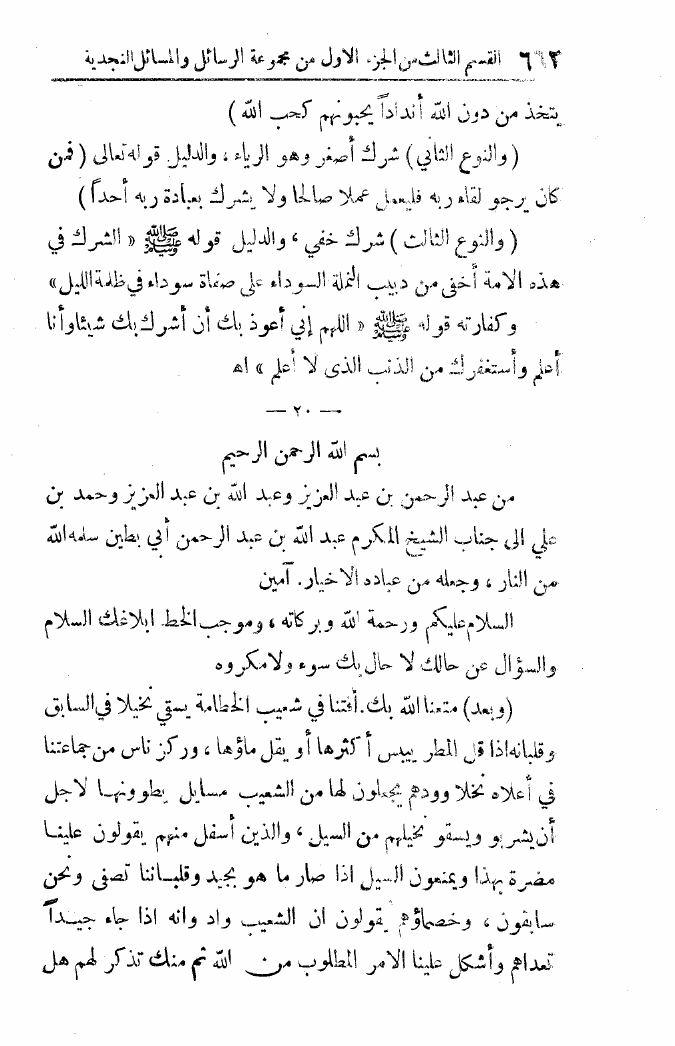 ٦٦٢ القسم الثالث من الجزء الاول من مجموعة الرسائل والمسائل النجدية
يتخذ من دون الله أنداداً يحبونهم كحب الله )
( والنوع الثاني ) شرك أصغر وهو الرياء ، والدليل قوله تعالى ( فمن
كان يرجو لقاء ربه فليعمل عملا صالحا ولا يشرك بعبادة ربه أحداً )
( والنوع الثالث ) شرك خفي ، والدليل قوله ﷺ « الشرك في
هذه الامة أخفى من دبيب النملة السوداء على صفاة سوداء في ظلمة الليل »
وكفارته قوله ﷺ « اللهم إني أعوذ بك أن أشرك بك شيئا وأنا
أعلم وأستغفرك من الذنب الذى لا أعلم » اه
— ٢٠ —
بسم الله الرحمن الرحيم
من عبد الرحمن بن عبد العزيز وعبد الله بن عبد العزيز وحمد بن
علي الى جناب الشيخ المكرم عبد الله بن عبد الرحمن أبي بطين سلمه الله
من النار ، وجعله من عباده الاخيار . آمين
السلام عليكم ورحمة الله وبركاته ، وموجب الخط ابلاغك السلام
والسؤال عن حالك لا حال بك سوء ولا مكروه
( وبعد ) متعنا الله بك . أفتنا في شعيب الخطامة يسقي نخيلا في السابق
وقلبانه اذا قل المطر ييبس أكثرها أو يقل ماؤها ، وركز ناس من جماعتنا
في أعلاه نخلا وودهم يجعلون لها من الشعيب مسايل يطوونها لاجل
أن يشربو ويسقو نخيلهم من السيل ، والذين أسفل منهم يقولون علينا
مضرة بهذا ويمنعون السيل اذا صار ما هو بجيد وقلباننا تصفى ونحن
سابقون ، وخصماؤهم يقولون ان الشعيب واد وانه اذا جاء جيداً
تعداهم وأشكل علينا الامر المطلوب من الله ثم منك تذكر لهم هل